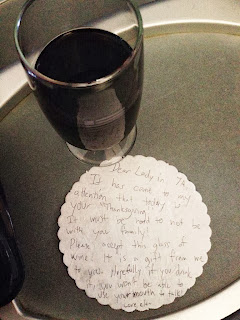 Dear Lady in 7A,
It has come to my
attention that today is
your "Thanksgiving".
It must be hard to not be
with your family!
Please accept this glass of
wine! It is a gift from me
to you. Hopefully if you drink
it, you won't be able to
use your mouth to talk!
Love, Elan